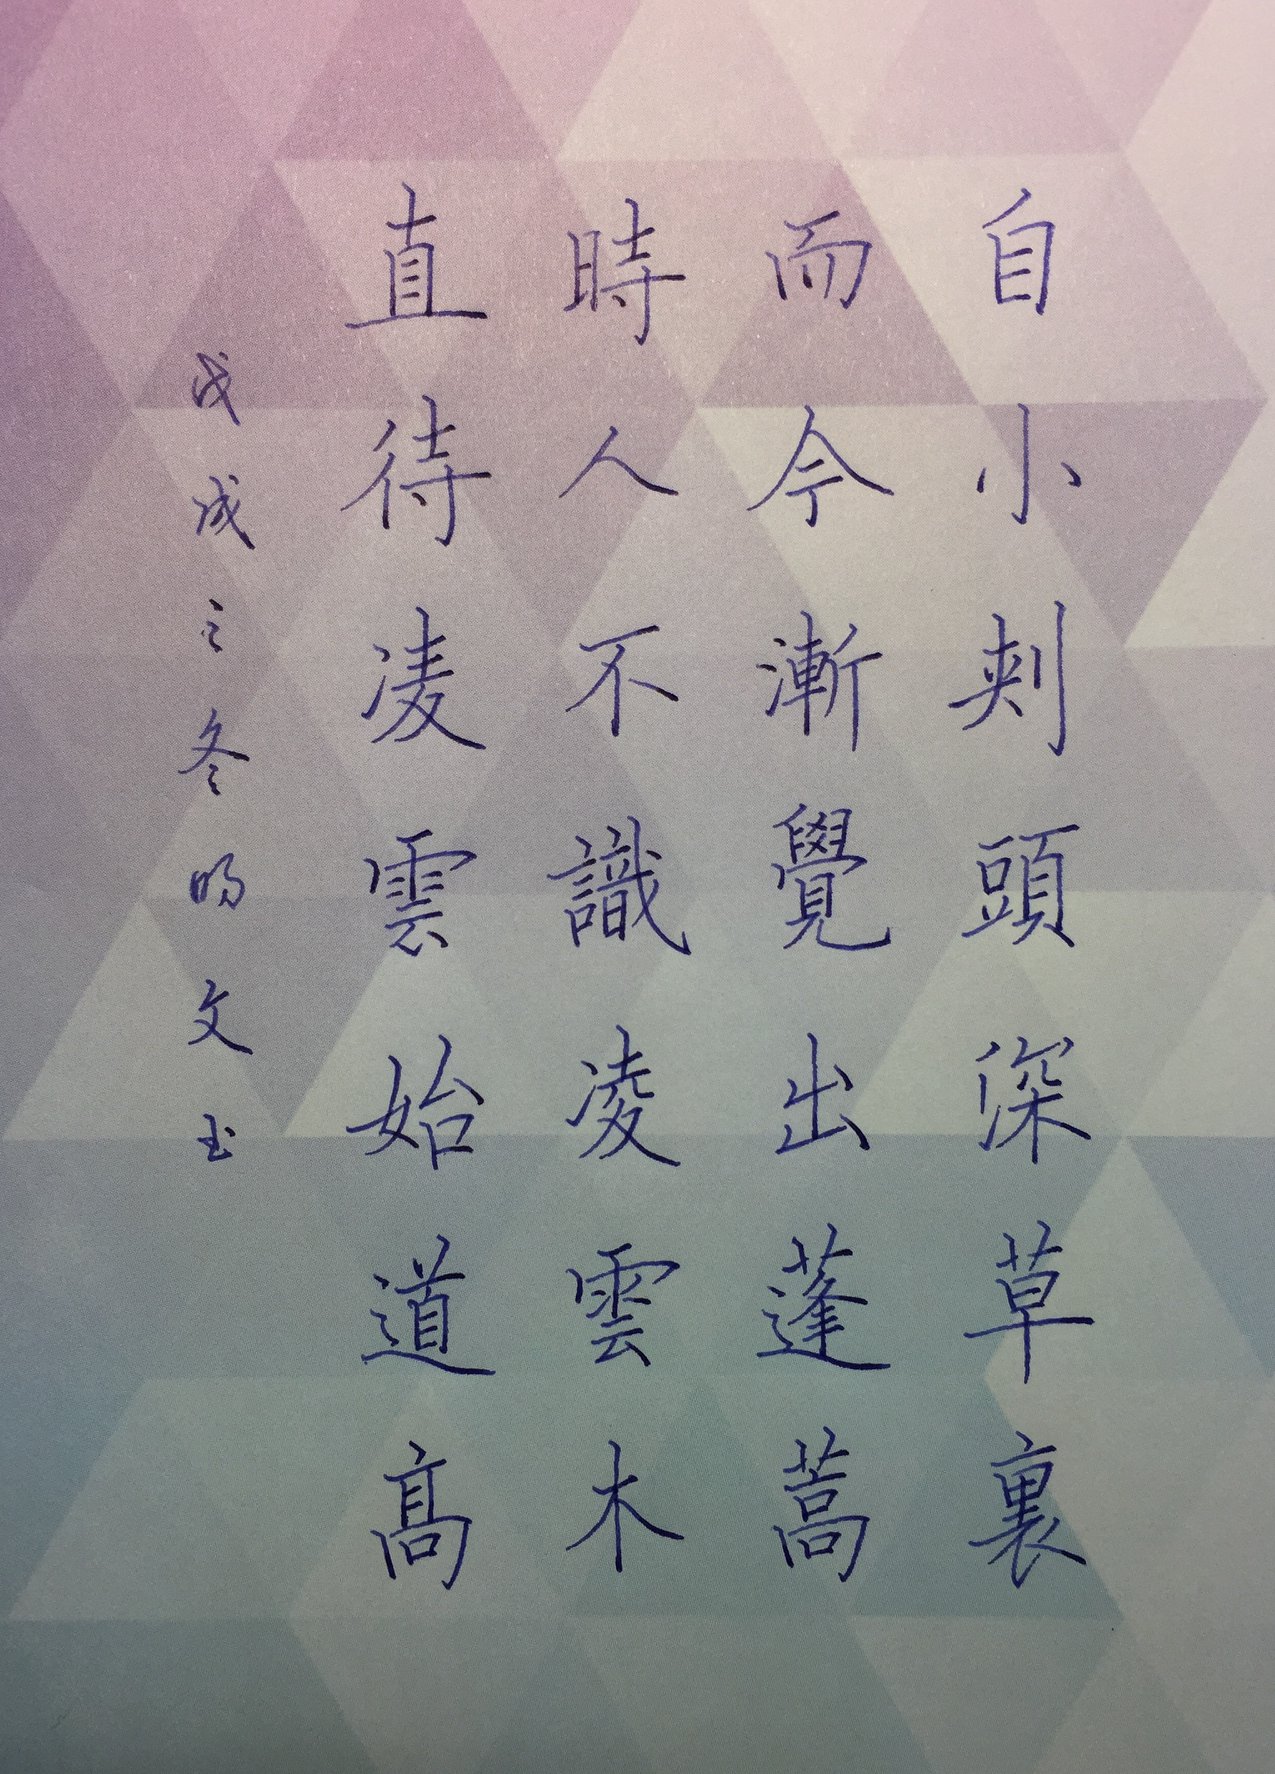 自小刺頭深草裏
而今漸覺出蓬蒿
時人不識凌雲木
直待凌雲始道高
戊戌之冬明文书